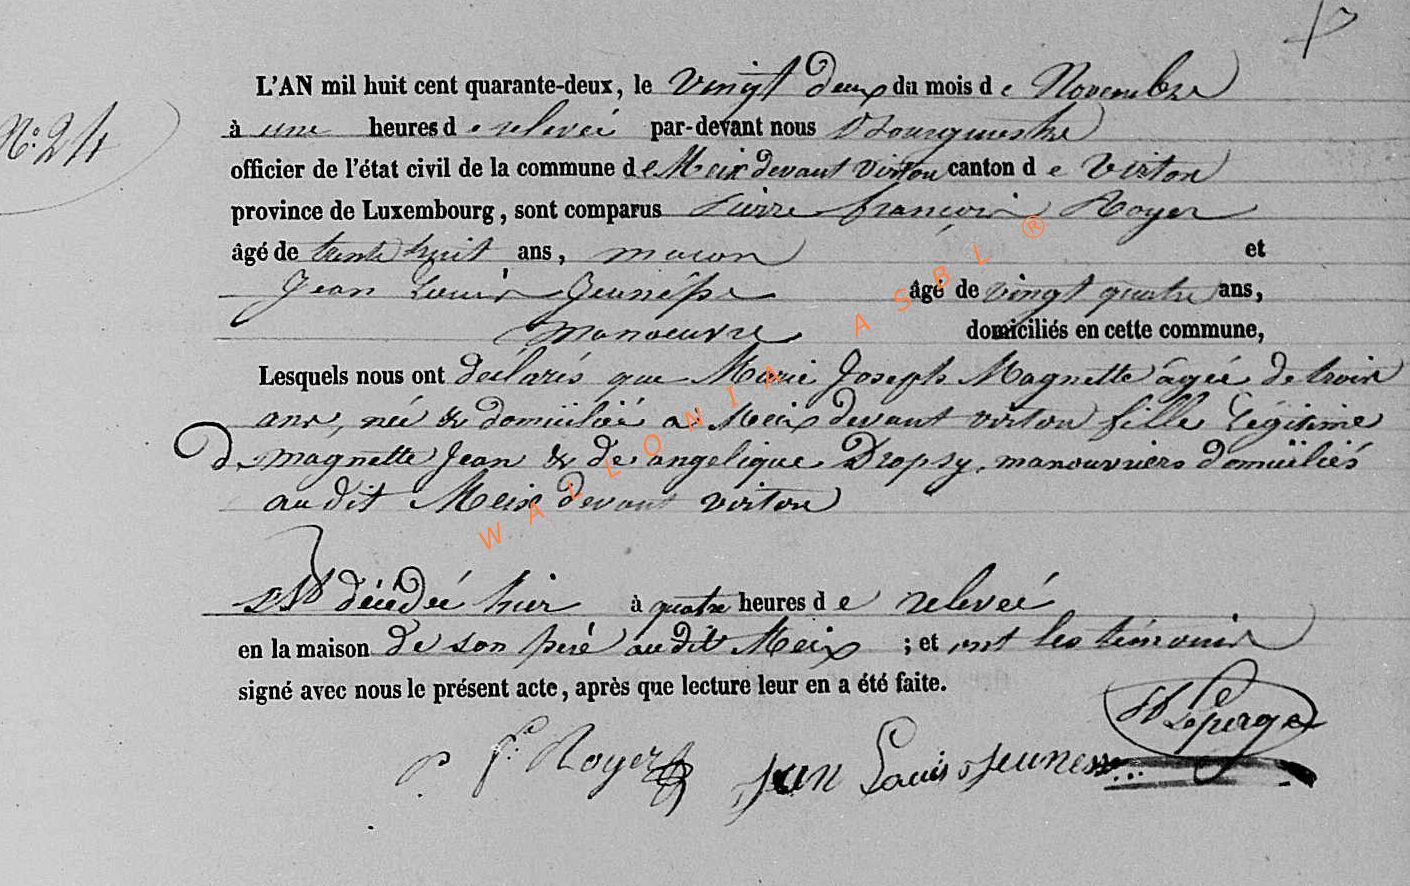 L'AN mil huit cent quarante-deux, le vingt deux du mois de Novembre
N.° 24
à une heures de relevée par-devant nous Bourguestre
officier de l'état civil de la commune de Meix devant Virton canton de Virton
province de Luxembourg, sont comparus Pierre françois Royer
âgé de trente huit ans, macon et
Jean Louis Jeunésse âgé de vingt quatre ans,
manoeuvre domiciliés en cette commune,
Lesquels nous ont déclarés que Marie Joseph Magnette âgée de trois
ans, née & domiciliée a Meix devant virton fille légitime
de magnette Jean & de angelique Dropsy, manouvriers domiciliés
au dit Meix devant virton
est décédée hier à quatre heures de relevée
en la maison de son peré au dit Meix ; et ont les témouis
signé avec nous le présent acte, après que lecture leur en a été faite.
P f. Royer Jean Louis Jeunesse
WALLONIA ASBL ®